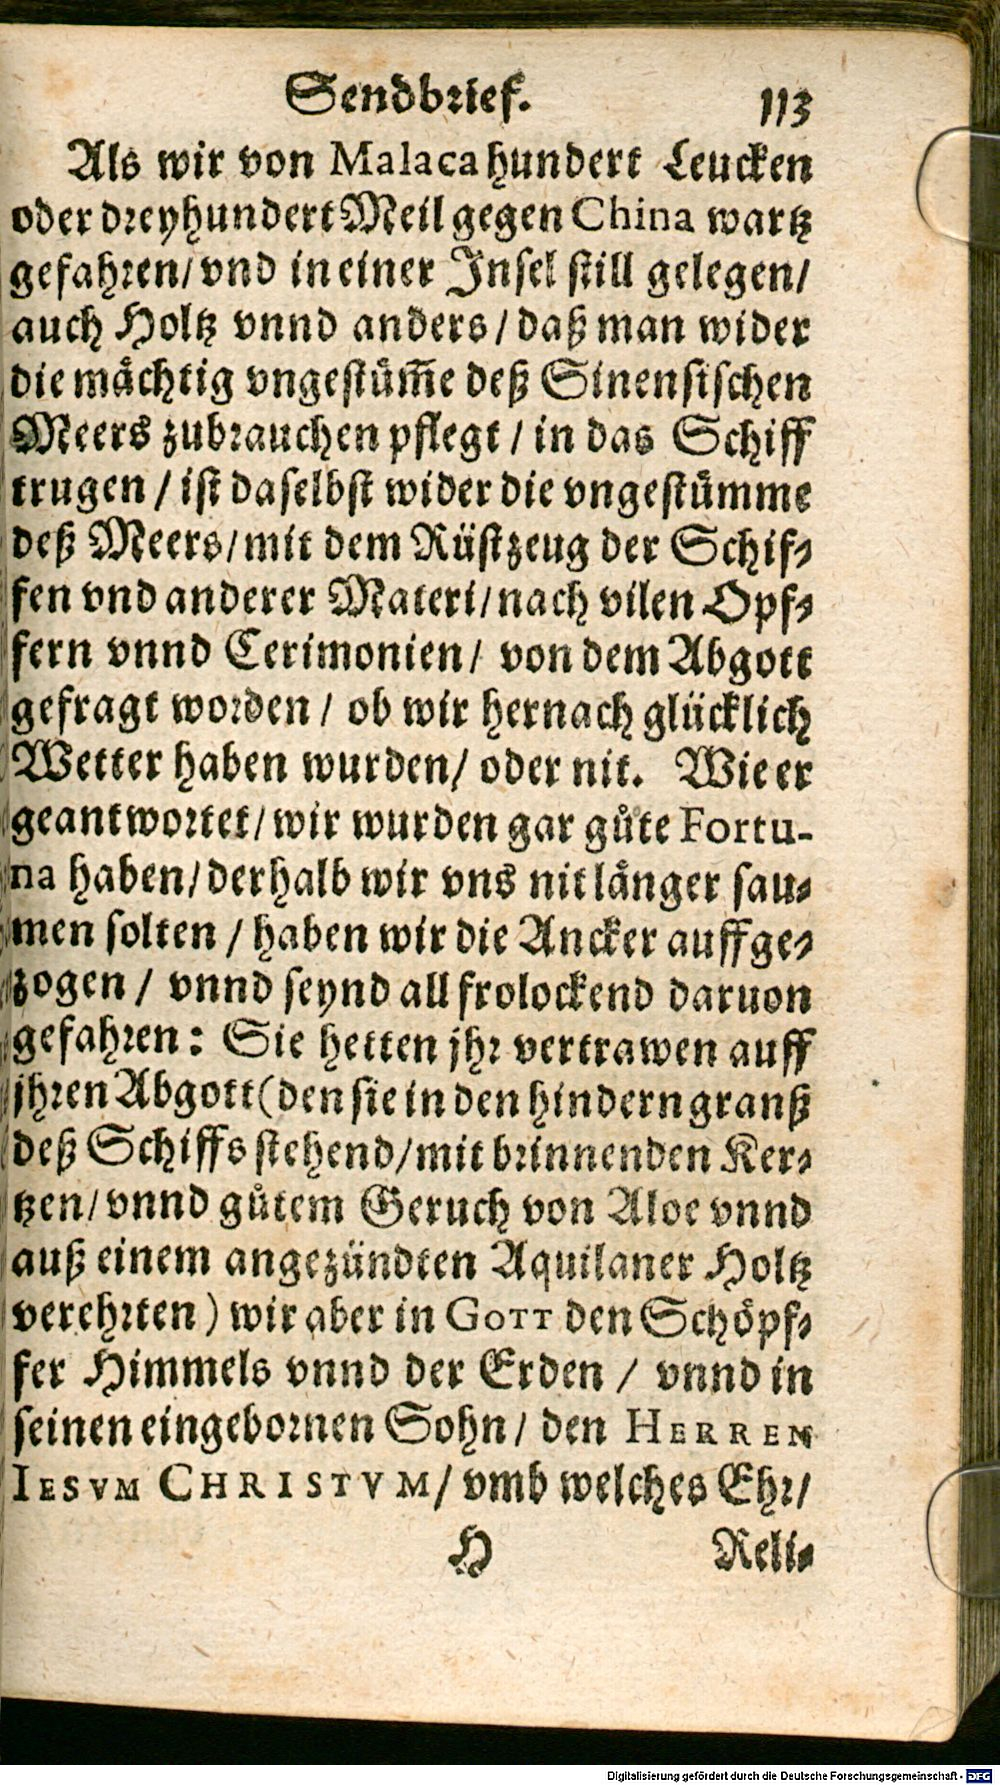 Sendbrief. 113
Als wir von Malaca hundert Leucken
oder dreyhundert Meil gegen China wartz
gefahren/ vnd in einer Insel still gelegen/
auch Holtz vnnd anders/ daß man wider
die mächtig vngestüm̃e deß Sinensischen
Meers zubrauchen pflegt/ in das Schiff
trugen/ ist daselbst wider die vngestümme
deß Meers/ mit dem Rüstzeug der Schif⸗
fen vnd anderer Materi/ nach vilen Opf⸗
fern vnnd Cerimonien/ von dem Abgott
gefragt worden/ ob wir hernach glücklich
Wetter haben wurden/ oder nit. Wie er
geantwortet/ wir wurden gar gůte Fortu-
na haben/ derhalb wir vns nit länger sau⸗
men solten/ haben wir die Ancker auffge⸗
zogen/ vnnd seynd all frolockend daruon
gefahren: Sie hetten jhr vertrawen auff
jhren Abgott (den sie in den hindern granß
deß Schiffs stehend/ mit brinnenden Ker⸗
tzen/ vnnd gůtem Geruch von Aloe vnnd
auß einem angezündten Aquilaner Holtz
verehrten) wir aber in GOTT den Schöpf⸗
fer Himmels vnnd der Erden/ vnnd in
seinen eingebornen Sohn/ den HERREN
IESVM CHRISTVM/ vmb welches Ehr/
H Reli⸗
Digitalisierung gefördert durch die Deutsche Forschungsgemeinschaft - DFG